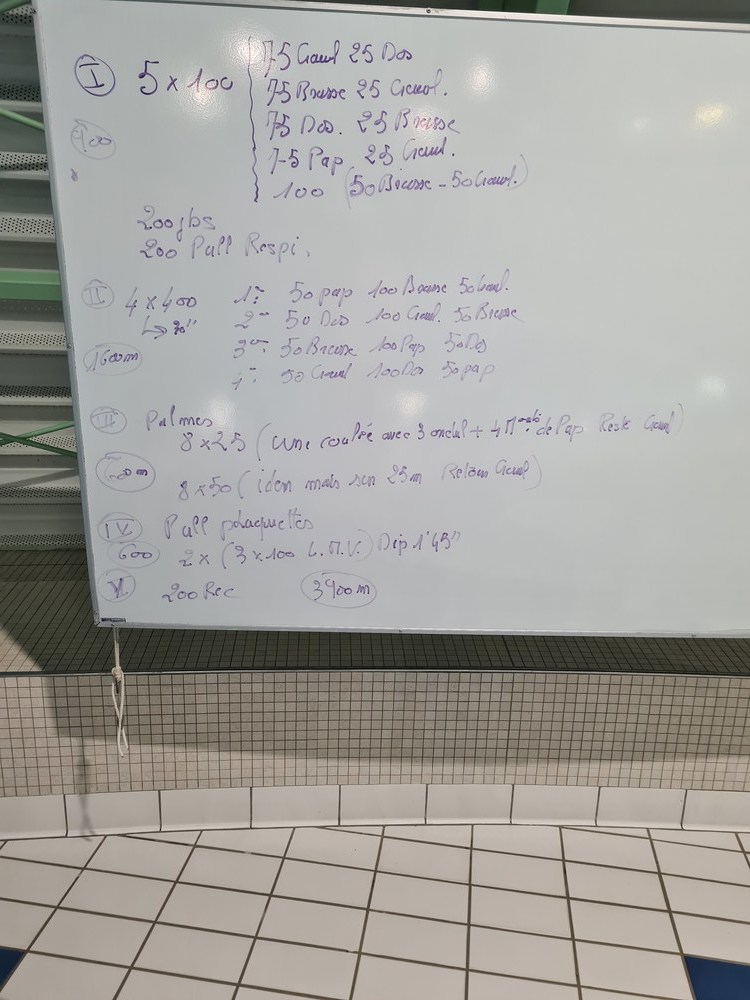 I 5 x 100
75 Crawl 25 Dos
75 Brasse 25 Crawl.
900
75 Dos. 25 Brasse
75 Pap 25 Crawl.
100 (50 Brasse - 50 Crawl.)
200 jbs
200 Pull Respi.
II 4 x 400 1° 50 pap 100 Brasse 50 Crawl.
↳ 30" 2° 50 Dos 100 Crawl. 50 Brasse
1600m 3° 50 Brasse 100 Pap 50 Dos
4° 50 Crawl 100 Dos 50 pap
III Palmes
8 x 25 (une coulée avec 3 ondul + 4 de Pap Reste Crawl)
8 x 50 (idem mais sur 25m Retour Crawl)
IV Pull plaquettes
600 2 x (3 x 100 L.M.V.) Dép 1'45"
V 200 Rec 3900m